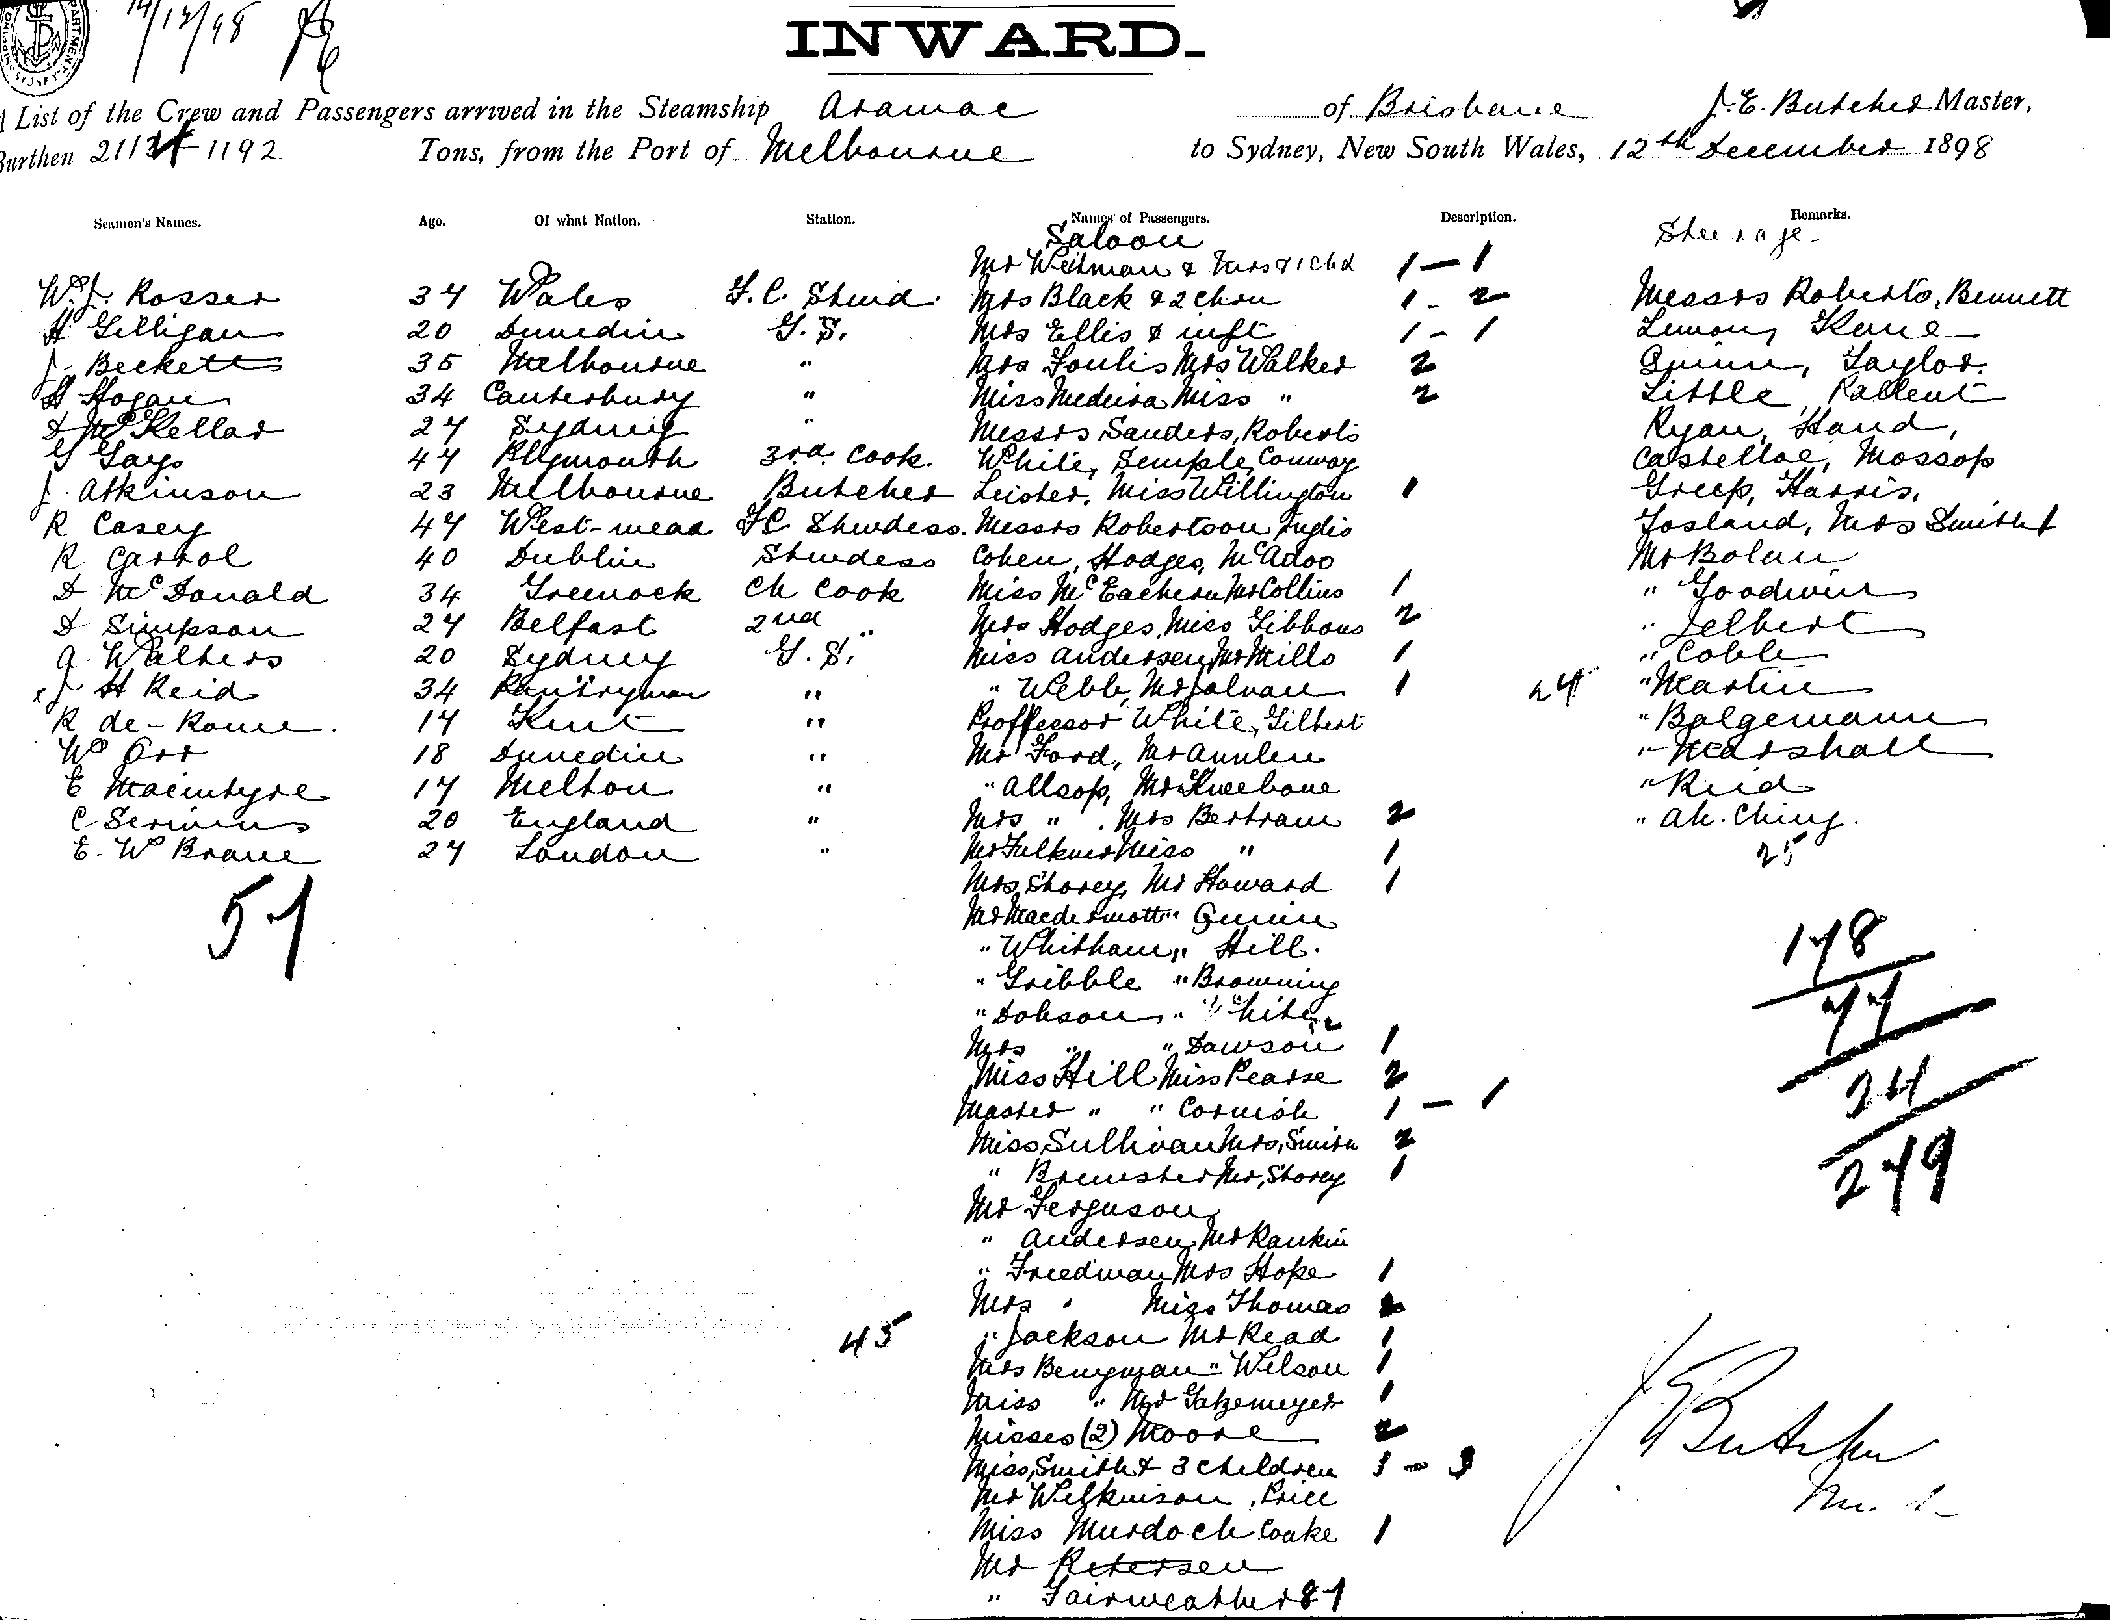 14/12/98
INWARD.
A List of the Crew and Passengers arrived in the Steamship Aramac of Brisbane J. E. Butcher Master,
Burthen 1192 Tons, from the Port of Melbourne to Sydney, New South Wales, 12th December 1898
Seamen's Names. Age. Of what Nation. Station. Names of Passengers. Description. Remarks.
Saloon Steerage
Mr Weitman & Mrs & 1 chd 1 — 1
Wm J. Rosser 37 Wales F. C. Stwd. Mrs Black & 2 chrn 1 - 2 Messrs Roberts, Bennett
H Gilligan 20 Dunedin G. S. Mrs Ellis & inft 1 - 1 Lemon, Kane
J. Beckett 35 Melbourne " Mrs Foulis Mrs Walker 2 Quinn, Taylor.
H Hogan 34 Canterbury " Miss Medeira Miss " 2 Little, Pallent
D McKellar 27 Sydney " Messrs Sanders, Roberts Ryan, Hand,
G Gays 47 Plymouth 3rd Cook. White, Semple, Conway Castelloe, Mossop
J. Atkinson 23 Melbourne Butcher Leister, Miss Willington 1 Greep, Harris,
R Casey 47 West-mead F.C Stwdess. Messrs Robertson, Inglis Josland, Mrs Smith 1
R Carrol 40 Dublin Stwdess Cohen, Hodges, McAdoo Mr Bolan
D McDonald 34 Greenock Ch Cook Miss McEachern Mr Collins 1 " Goodwin
D Simpson 27 Belfast 2nd " Mrs Hodges, Miss Gibbons 2 " Jelbert
A. Walters 20 Sydney G. S. Miss Andersen, Mr Mills 1 " Cobb
x J H Reid 34 Pantryman " " Webb, Mr Jolnan 1 24 " Martin
R de-Rome. 17 Kent " Proffessor White, Gilbert " Bolgemann
Wm Orr 18 Dunedin " Mr Ford, Mr Annlen " Marshall
E Macintyre 17 Melton " " Allsop, Mr Kneebone " Reid
C Serivens 20 England " Mrs " . Mrs Bertram 2 " Ah. Ching.
E. Wm Brane 27 London " Mr Fulkner Miss " 1 25
57 Mrs Storey, Mr Howard 1
Mr Macdermott " Quinn 178
" Whitham, " Hill.
" Gribble " Browning 77
" Dobson, " White
Mrs " " Dawson 1
Miss Hill Miss Pearse 2 24
Master " " Cornish 1 — 1
Miss Sullivan Mrs, Smith 2
" Brewster Mr, Storey 1 279
Mr Ferguson,
" Andersen, Mr Rankin
" Freedman Mrs Hope 1
Mrs " Miss Thomas 2
45 " Jackson Mr Read 1
Mrs Bengman " Wilson 1
Miss " Mr Gatzemeyer 1
Misses (2) Moore 2
Miss, Smith & 3 children 1 - 3
Mr Wilkinson, Price
Miss Murdoch Coake 1
Mr Petersen
" Fairweather 81
J E Butcher